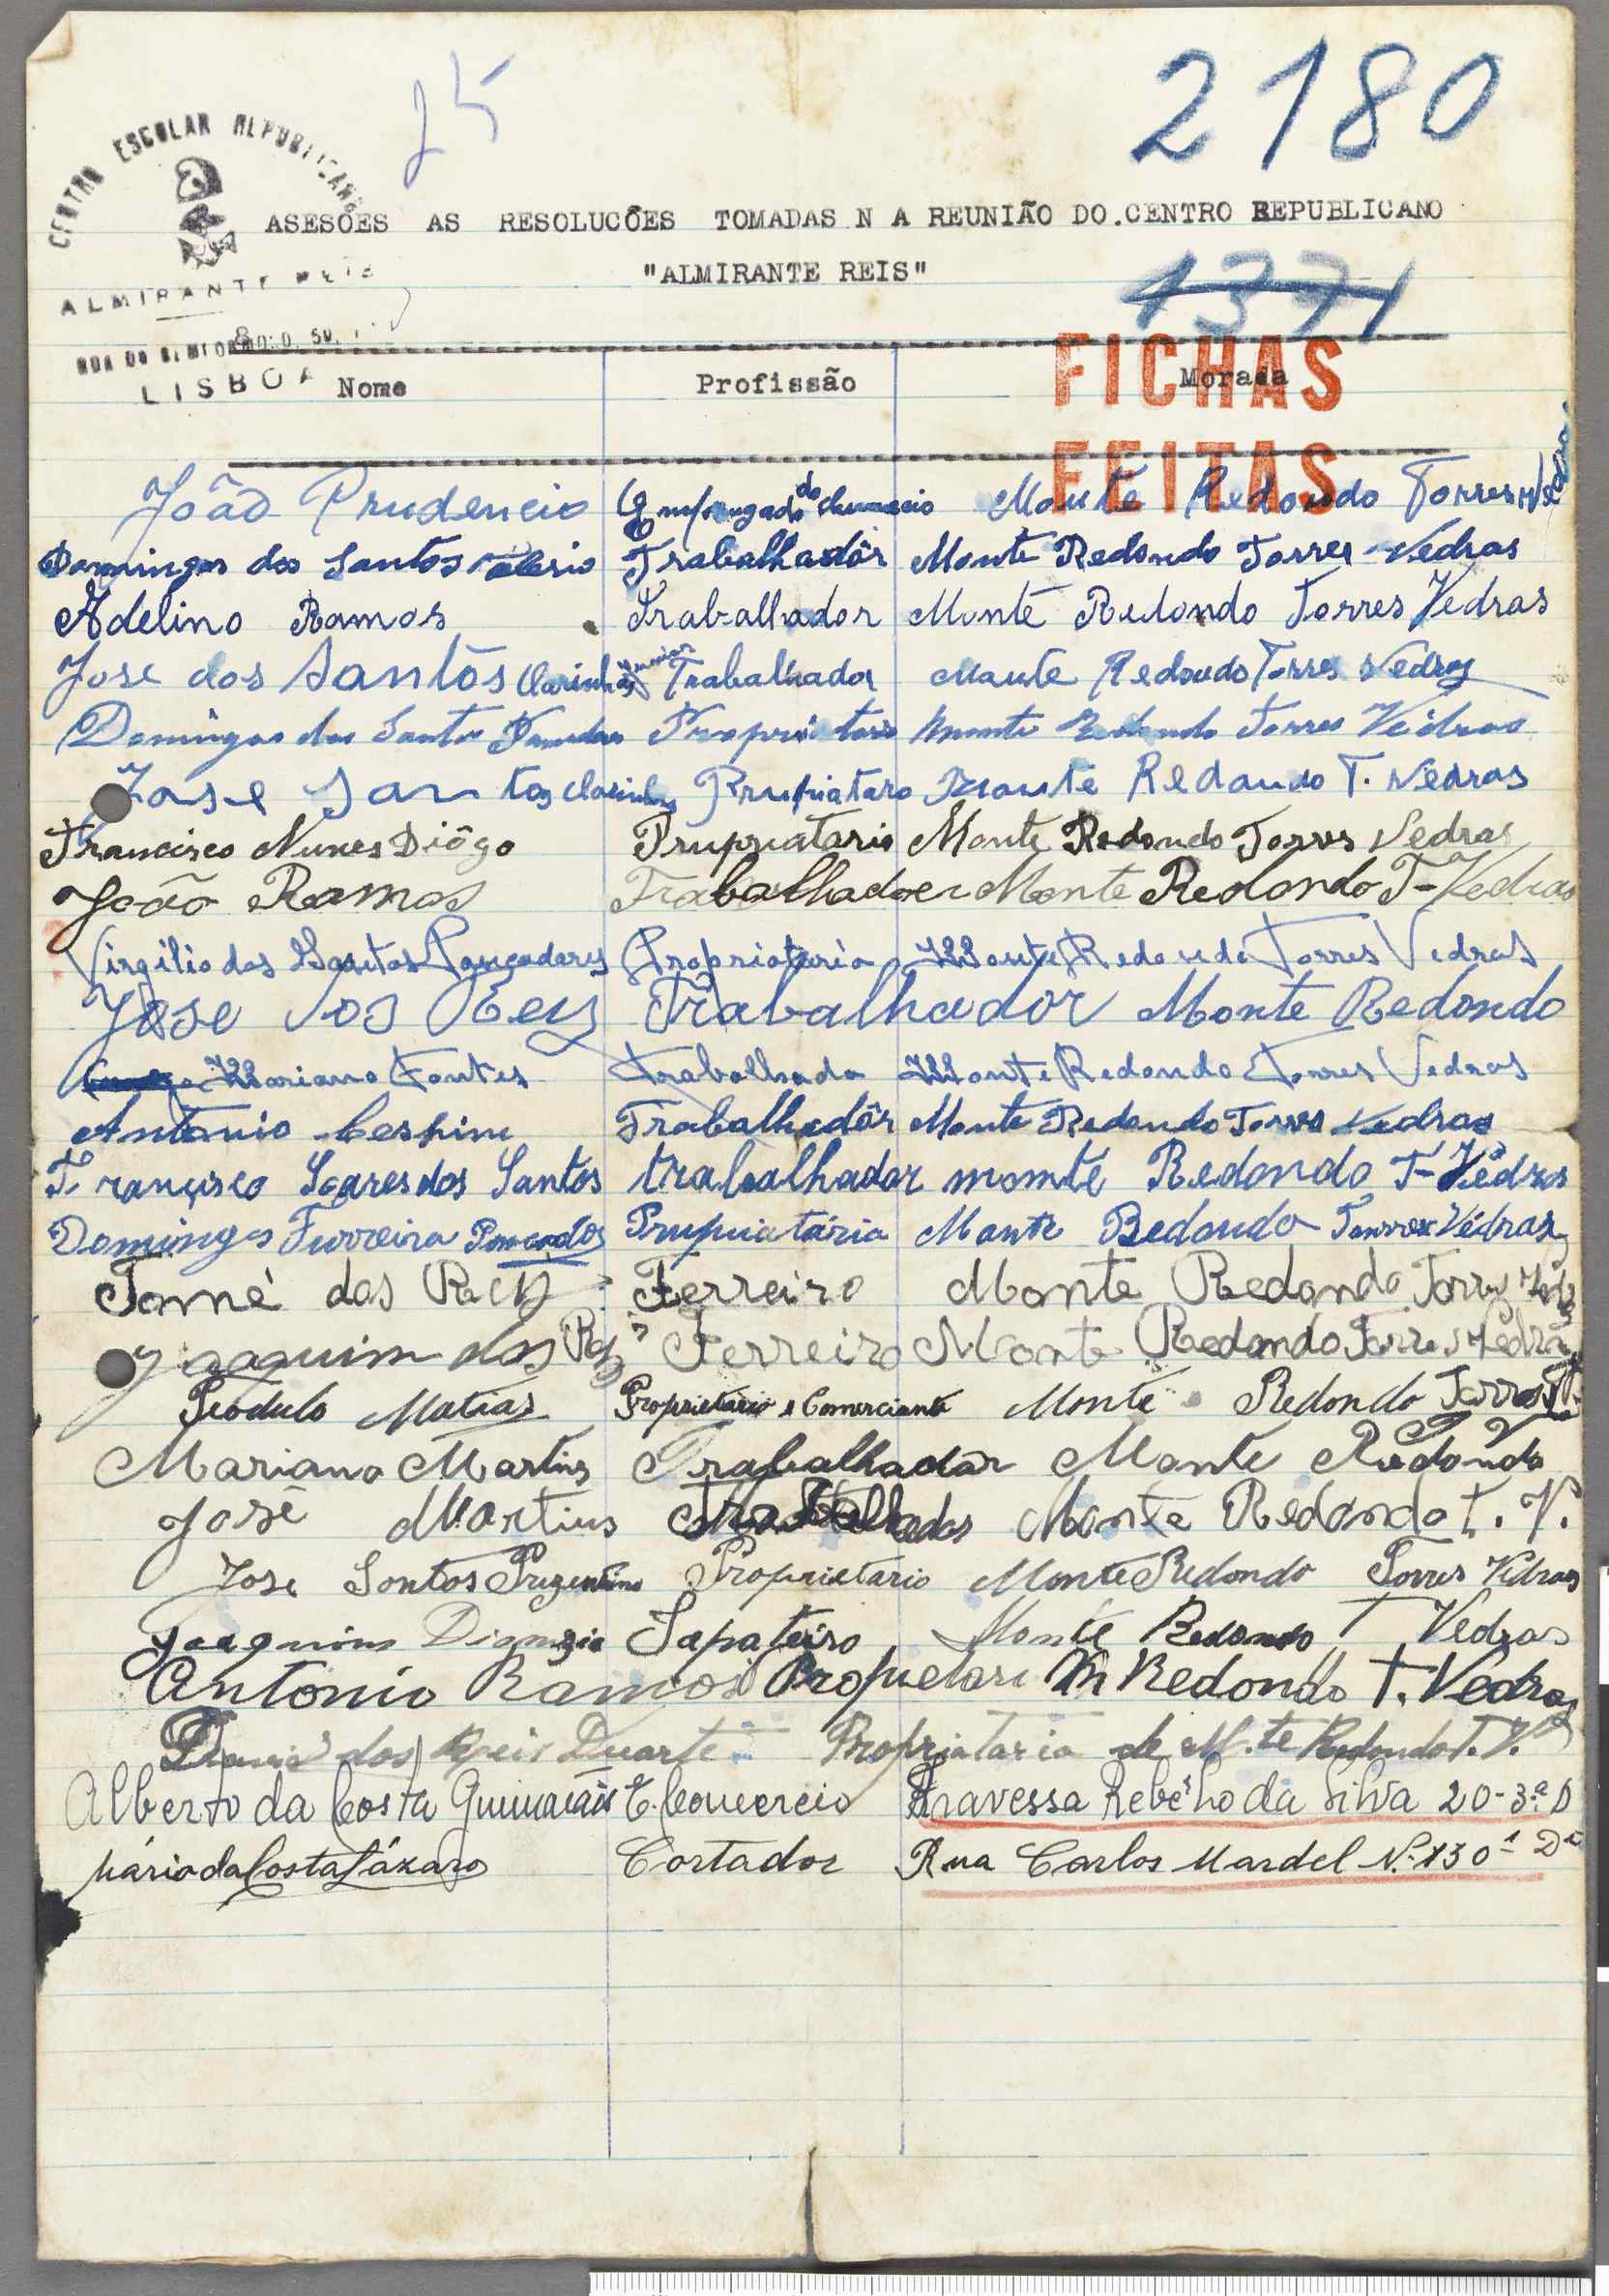 25
2180
CENTRO ESCOLAR REPUBLICANO
ALMIRANTE REIS
LISBOA
ASESÕES AS RESOLUCÕES TOMADAS N A REUNIÃO DO.CENTRO REPUBLICANO
"ALMIRANTE REIS"
1371
FICHAS
FEITAS
Nome Profissão Morada
João Prudencio Monte Redondo Torres
Domingos dos Santos Trabalhadôr Monte Redondo Torres Vedras
Adelino Ramos Trabalhador Monte Redondo Torres Vedras
Jose dos Santos Clarinha Trabalhador Monte Redondo Torres Vedras
Domingos dos Santos Propriatario Monte Redondo Torres Vedras
Jose Santos Prupiataro Monte Redondo T. Vedras
Francisco Nunes Diôgo Prupriatario Monte Redondo Torres Vedras
João Ramos Trabalhadoer Monte Redondo T-Vedras
Virgilio dos Santos Propriatario Monte Redondo Torres Vedras
Jose dos Reys Trabalhador Monte Redondo
Mariano Fontes Trabalhado Monte Redondo Torres Vedras
Antonio Trabalhadôr Monte Redondo Torres Vedras
Françisco Soares dos Santos trabalhador monte Redondo T-Vedras
Domingos Furreira Prupiatário Monte Redondo Torres Védras
Tomé dos Reis Ferreiro Monte Redondo Torres
Joaquim dos Rys Ferreiro Monte Redondo Torres Vedras
Teodulo Matias Proprietario e Comerciante Monte Redondo Torres
Mariano Martins Trabalhadôr Monte Redondo
José Martins Monte Redondo T. V.
Jose Santos Proprietario Monte Redondo Torres Vedras
Joaquim Dionizio Sapateiro Monte Redondo T Vedras
Antonio Ramos Propuetari M Redondo T. Vedras
dos Reis Duarte Propriatario de M.te Redondo T. V.
Alberto da Costa Guimarães E. Comercio Travessa Rebelho da Silva 20-3.º D
Mário da Costa Lázaro Cortador Rua Carlos Mardel N.º 130